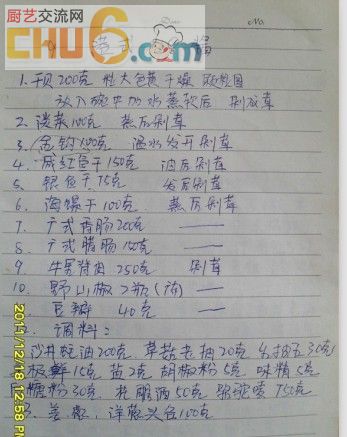 厨艺交流网
CHU6.com
Date No.
1. 干贝200克 粒大色黄干燥
放入碗中加水蒸软后 剁成茸
2. 淡菜100克 蒸后剁茸
3. 金钩100克 温水发开剁茸
4. 咸红鱼干150克 油后剁茸
5. 银鱼干75克 发后剁茸
6. 海螺干100克 蒸后剁茸
7. 广式香肠200克 ——
8. 广式腊肠150克 ——
9 牛里脊肉250克 剁茸
10. 野山椒2瓶 ——
豆瓣 40克 ——
调料:
沙井蚝油200克 草菇老抽20克 生抽王30克
极鲜15克 盐2克 胡椒粉5克 味精5克
糖粉30克 花雕酒50克 750克
姜 葱 洋葱 各100克
2011/12/18 12:58 PM